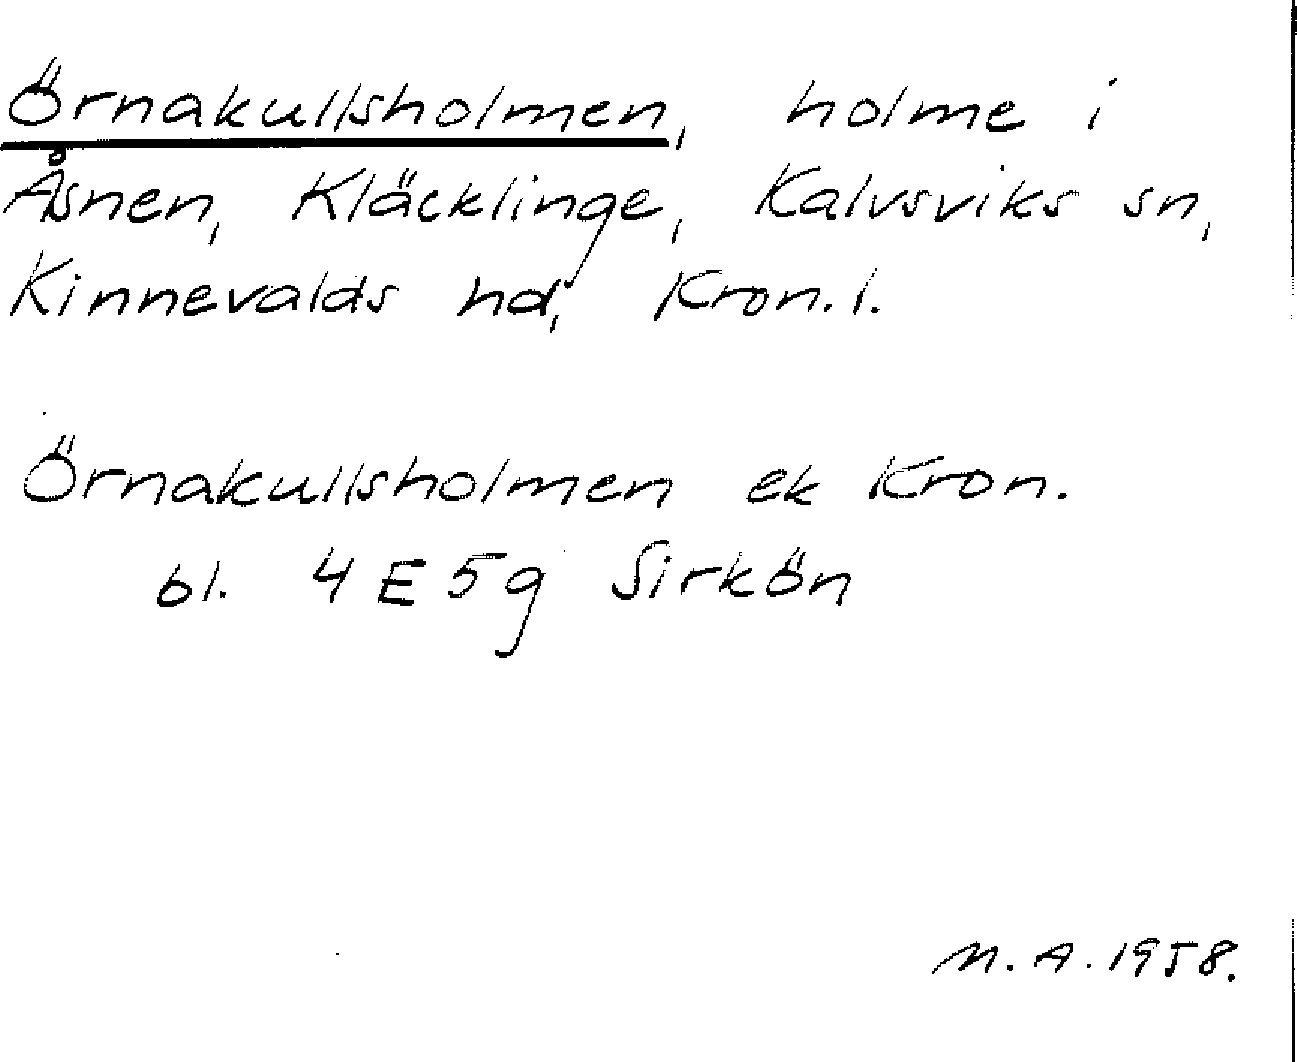 Örnakullsholmen, holme i
Åsnen, Kläcklinge, Kalvsviks sn,
Kinnevalds hd, Kron. l.
Örnakullsholmen ek Kron.
bl. 4 E 5g Sirkön
M. A. 1958.